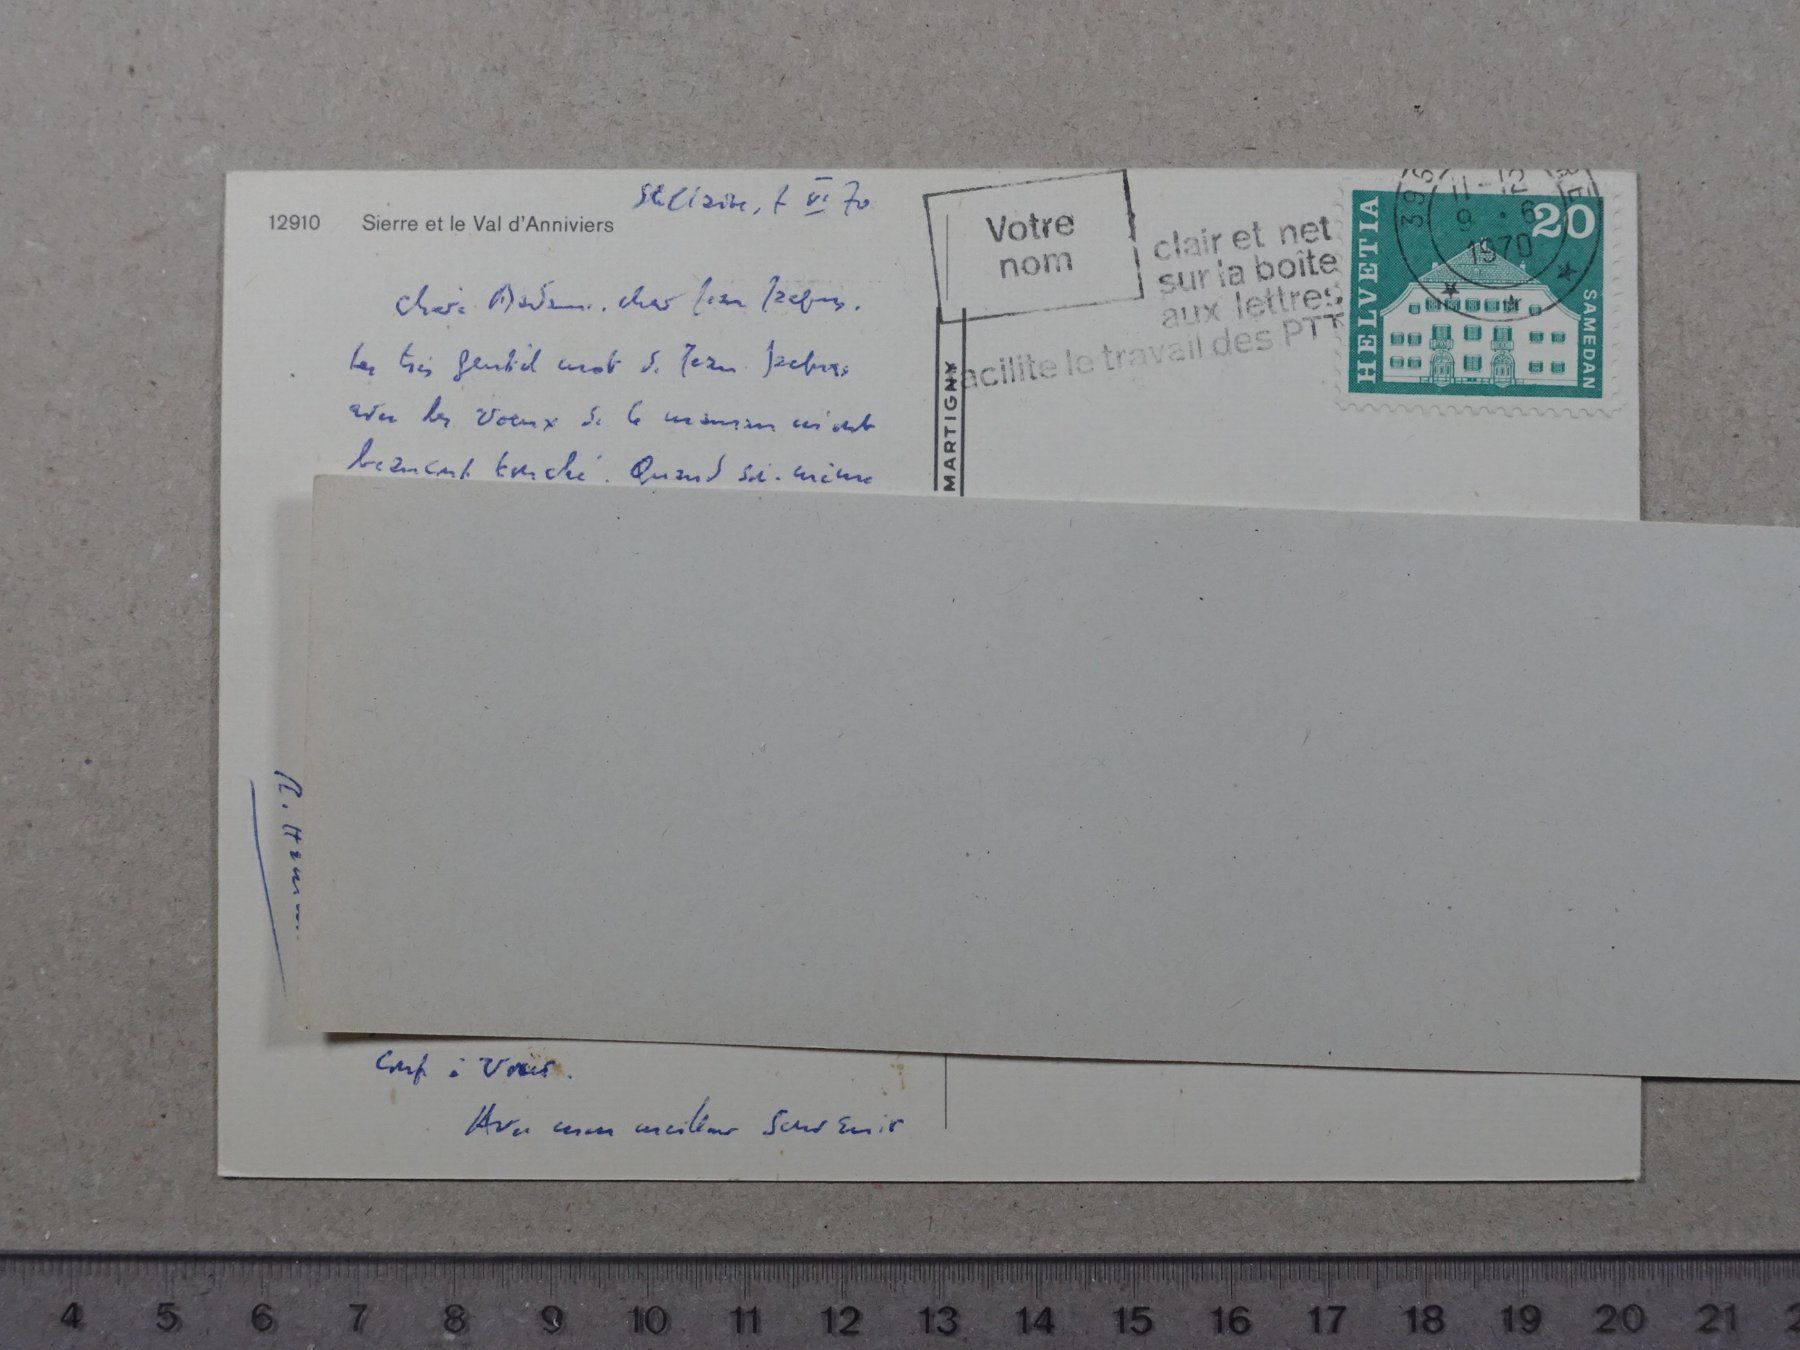 12910 Sierre et le Val d'Anniviers
Ste Claire, 7 VI 70
Votre
nom
clair et net
sur la boîte
aux lettres
acilite le travail des PTT
396
11-12
9.6
1970
20
HELVETIA
SAMEDAN
MARTIGNY
Chère Madame, cher Jean Jacques,
très gentil mot de Jean Jacques
avec les voeux de la maman m'ont
touché. Quand soi-même
R.
à Vous.
Avec mon meilleur Souvenir
4 5 6 7 8 9 10 11 12 13 14 15 16 17 18 19 20 21